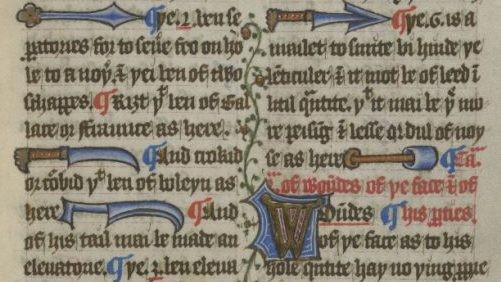 ¶ ye .2. ben se
paratories for to seue on ho
le to a noy', & yei ben of two
schappes. ¶ Riȝt yt ben of Gal
lare or ffraunce as here.
¶ And crokid
or cōbid yt ben of boleyn as
here ¶ And
of his tail mai be made an
eleuatorie. ¶ ye .3. ben eleua
¶ ye .6. is a
mailet to smite bi hinde ye
lēticuler & it mot be of leed ī
litul qntite. yt it mai be ye mo
re peisīg & lesse or dul of noy
se as here ¶ Ca.
of woūdes of ye face & of
Woūdes ¶ his pties.
of ye face as to his
hole qntite hay no ying ppre